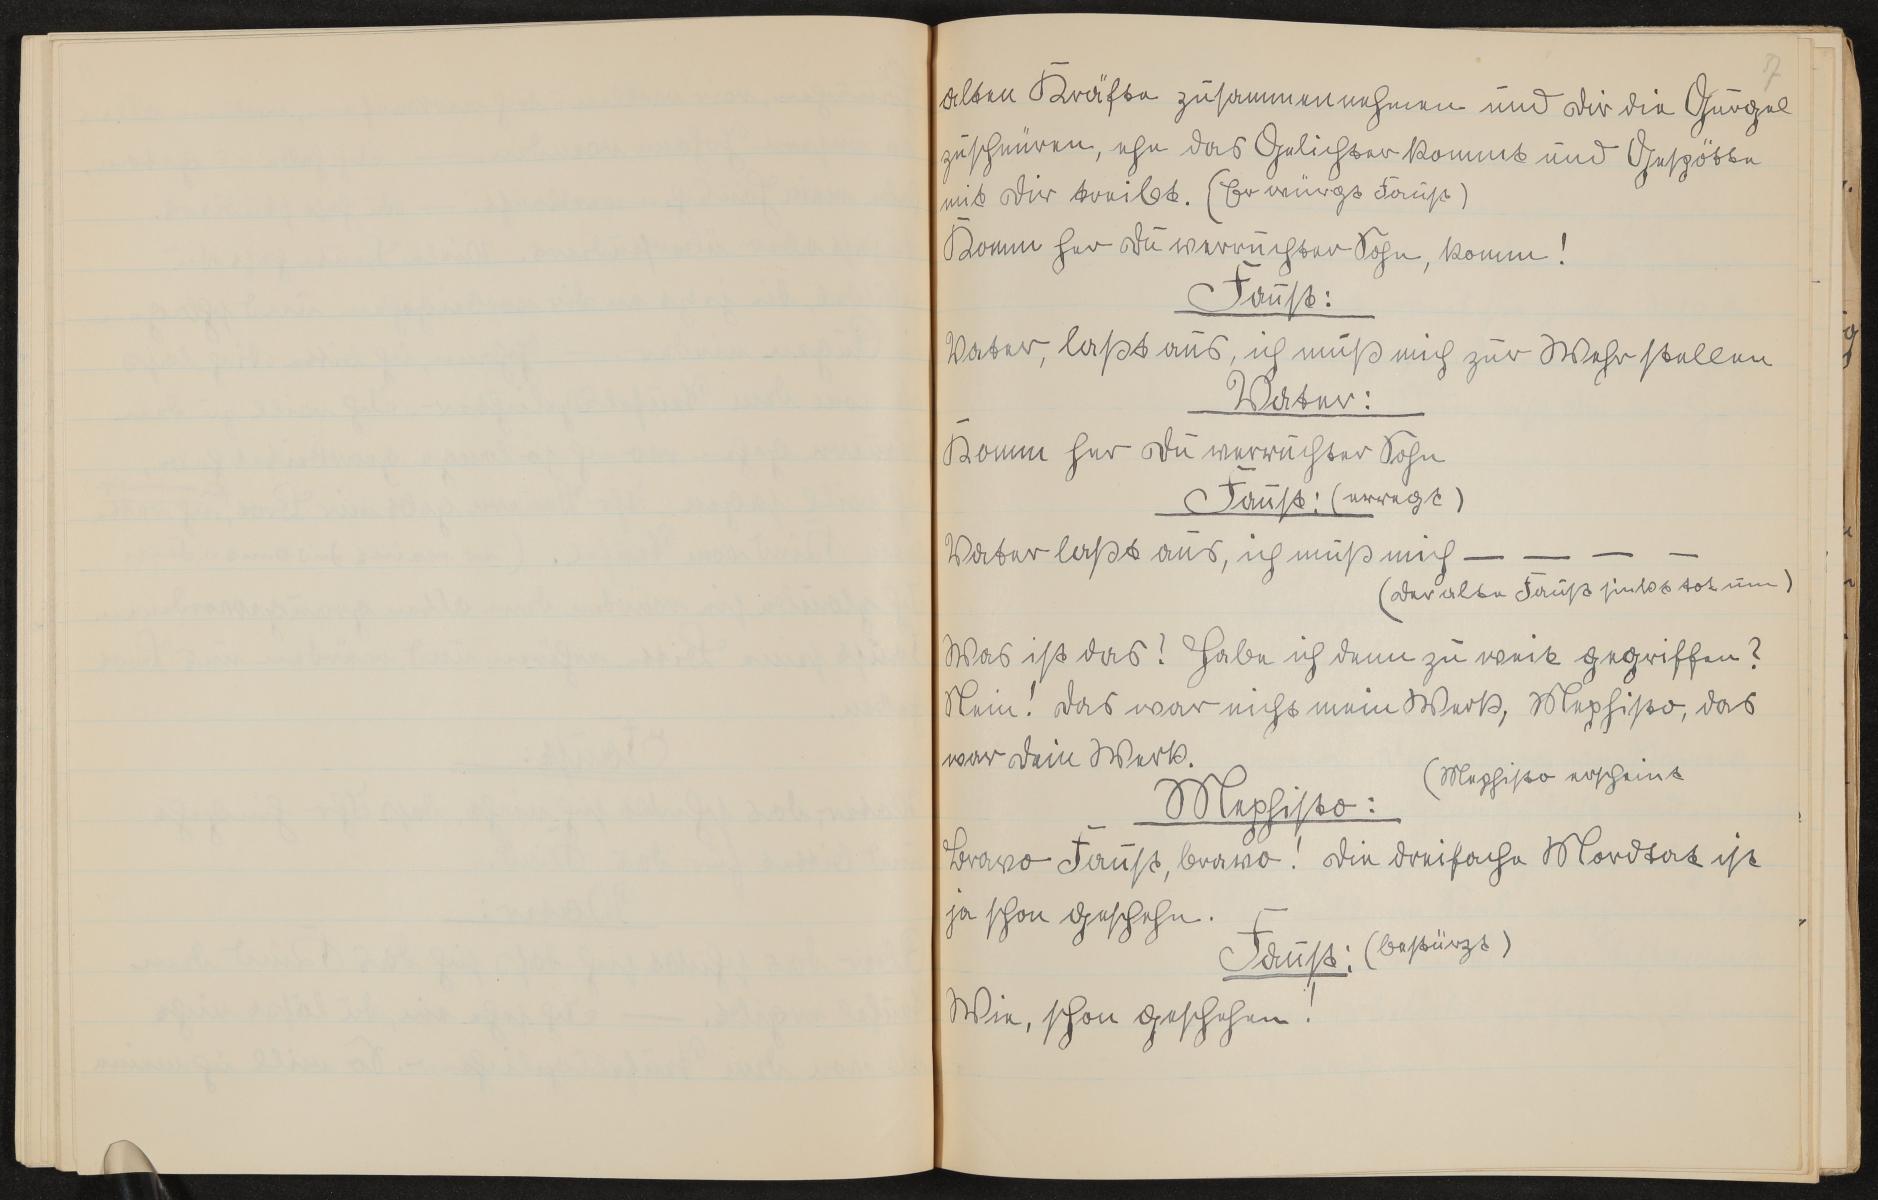 7
alten Kräfte zusammennehmen und dir die Gurgel
zuschnüren, ehe das Gelichter kommt und Gespötte
mit dir treibt. (Er würgt Faust)
Komm her du verruchter Sohn, komm!
Faust:
Vater, laßt aus, ich muß mich zur Wehr stellen
Vater:
Komm her du verruchter Sohn
Faust: (erregt)
Vater laßt aus, ich muß mich — — — —
(der alte Faust sinkt tot um)
Was ist das! Habe ich denn zu weit gegriffen?
Nein! das war nicht mein Werk, Mephisto, das
war dein Werk.
(Mephisto erscheint
Mephisto:
Bravo Faust, bravo! die dreifache Mordtat ist
ja schon geschehn.
Faust: (bestürzt)
Wie, schon geschehen!